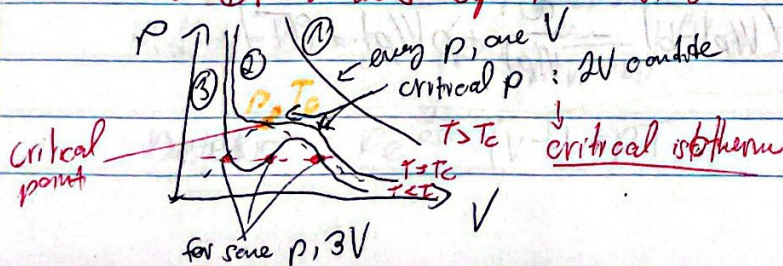 P
①
②
③
every P, one V
critical P : 2V
Pc Tc
T>Tc
critical isotherm
critical
point
T=Tc
T<Tc
V
for some P, 3V